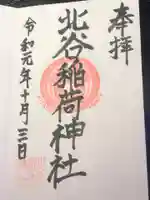 奉拝
北谷稲荷神社
令和元年十月三日